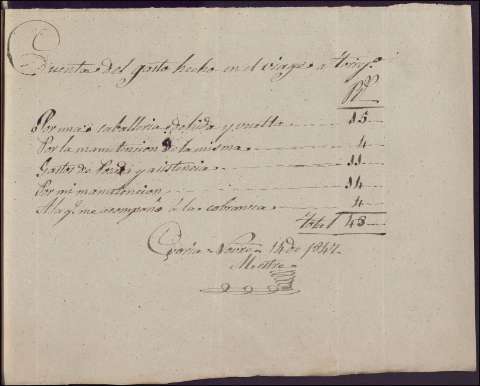 Cuenta del gasto hecho en el viage a
Rs
Por una caballeria de hida y vuelta 15
Por la manutencion de la misma 4
Gastos de Posada y asistencia 11
Por mi manutencion 14
A la q.e me acompaño á la cobranza 4
Total 48
Novre 14 de 1847
Mestre